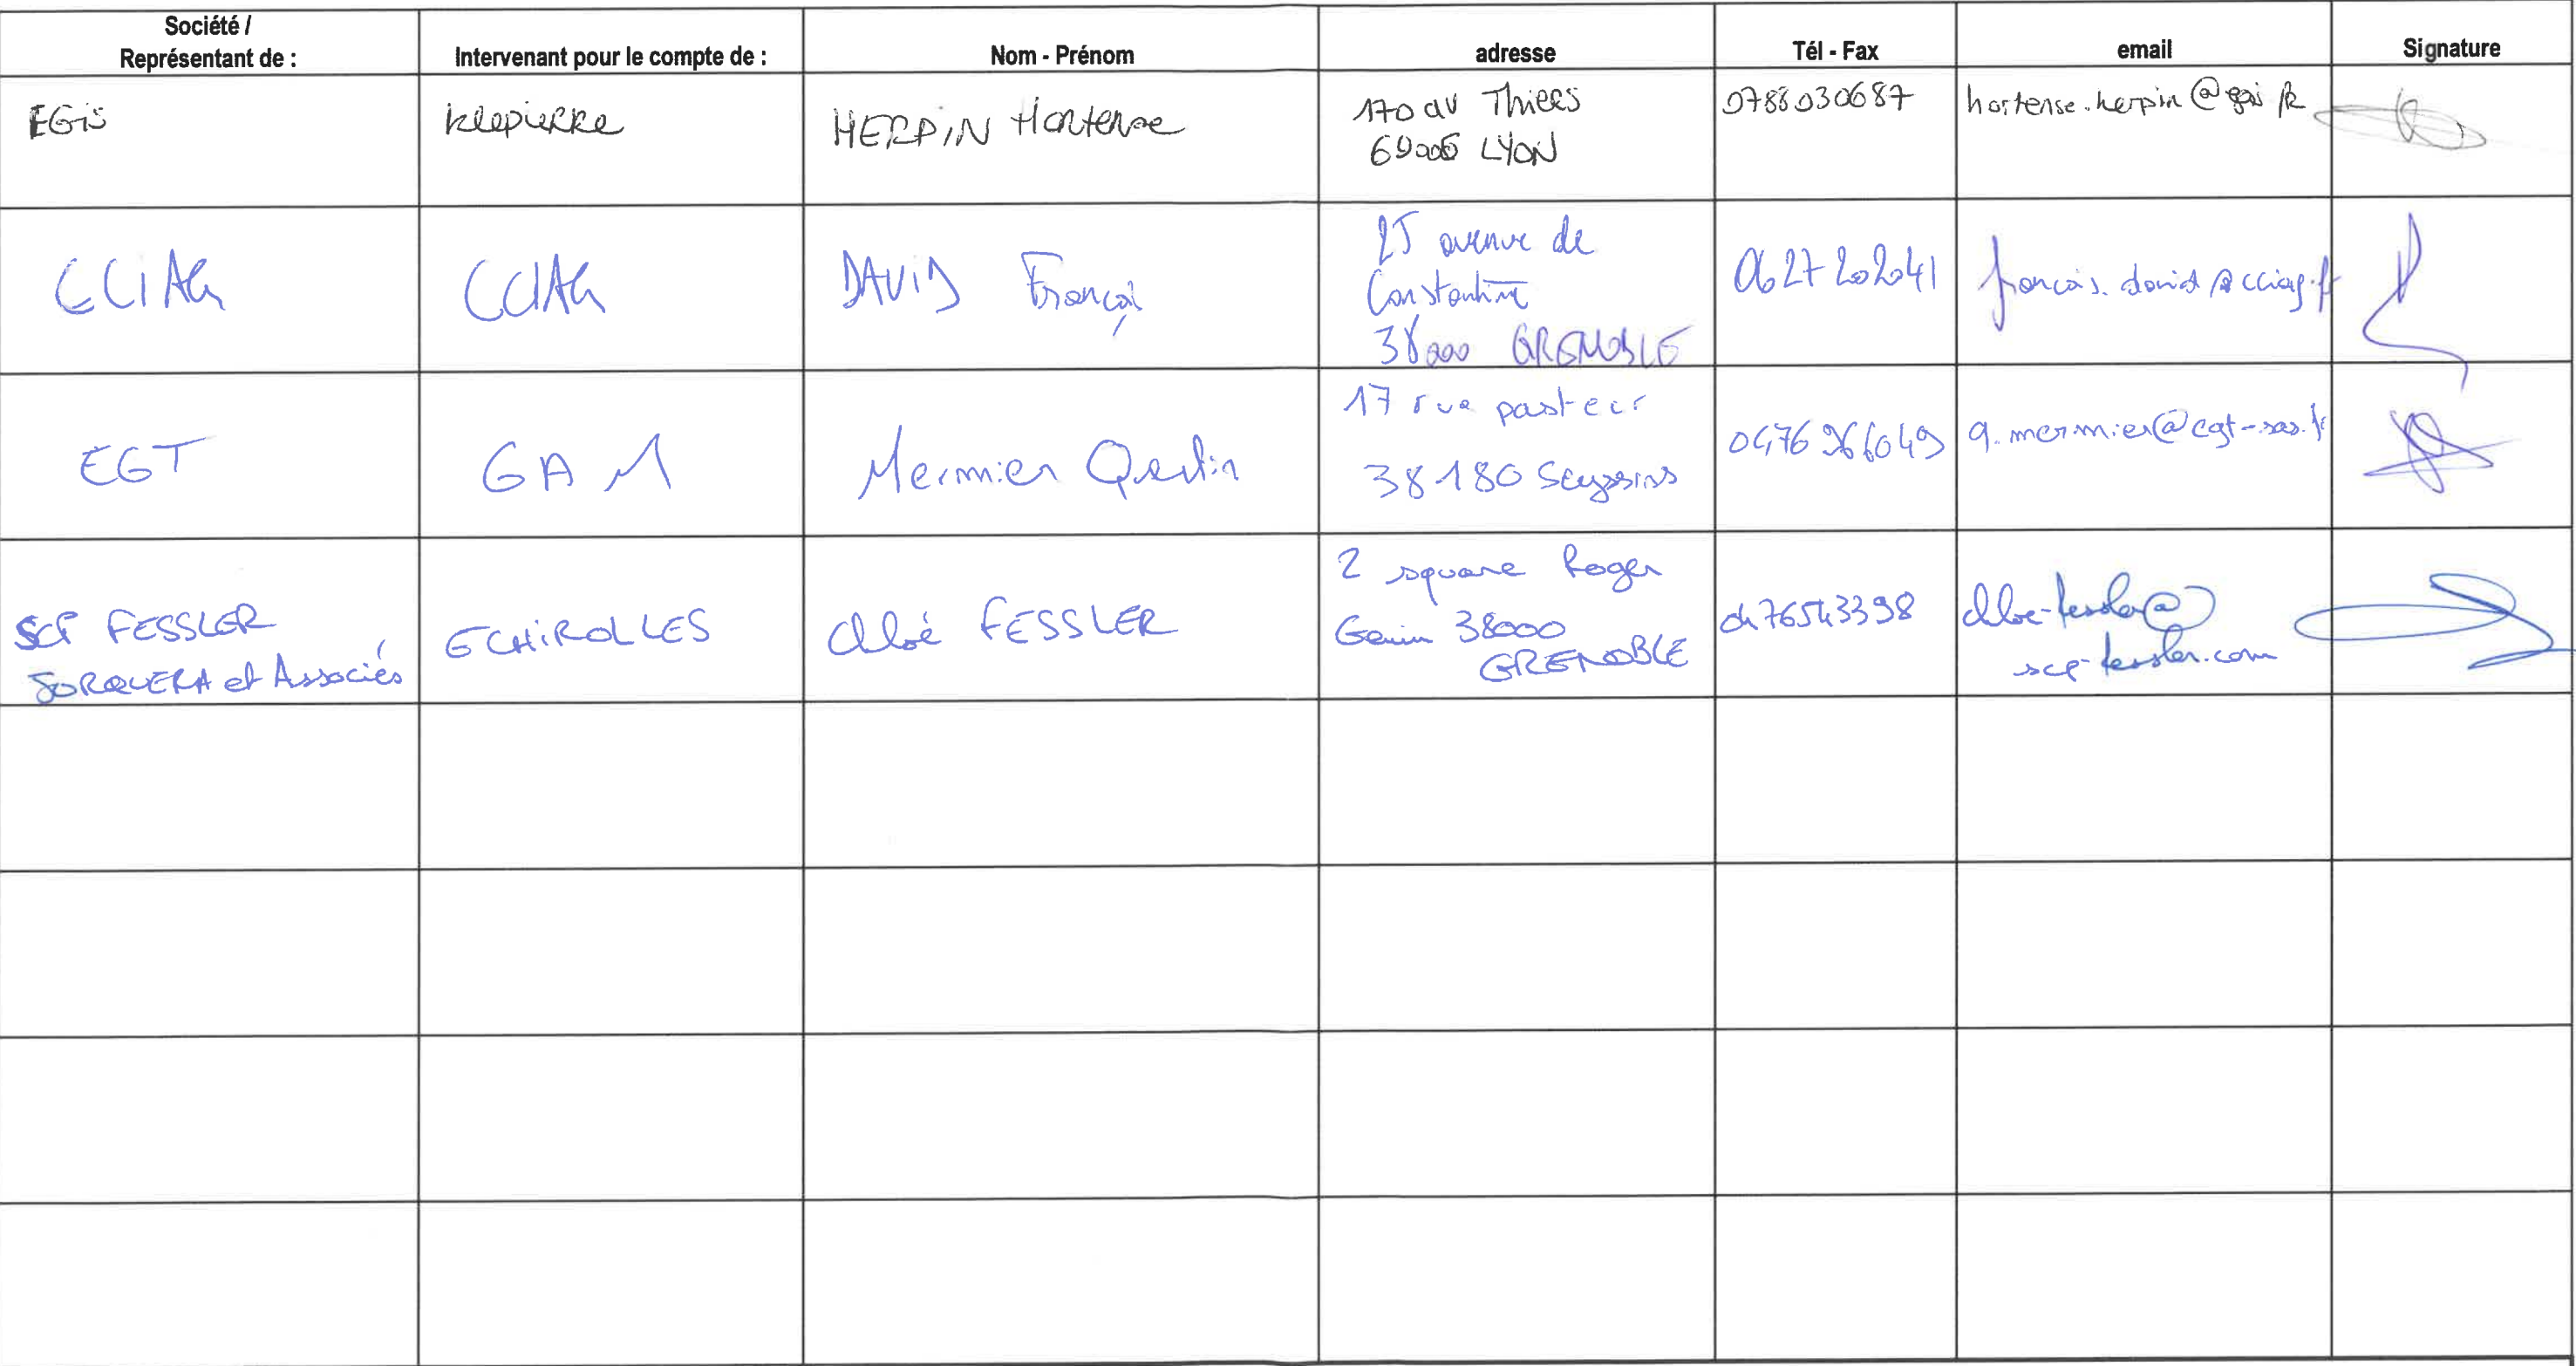 Société /
Représentant de :
Intervenant pour le compte de :
Nom - Prénom
adresse
Tél - Fax
email
Signature
EGis
klepierre
HERPIN Hortense
170 av Thiers
69006 LYON
0788030687
hortense.herpin@egis.fr
CCIAG
CCIAG
DAVID François
25 avenue de
Constantine
38000 GRENOBLE
0627202041
francois.david@cciag.fr
EGT
GAM
Mermier Quentin
17 rue pasteur
38180 Seyssins
0476966049
q.mermier@egt-sas.fr
SCP FESSLER
JORQUERA et Associés
ECHIROLLES
Chloé FESSLER
2 square Roger
Genin 38000
GRENOBLE
0476543398
chloe-fessler@
scp-fessler.com